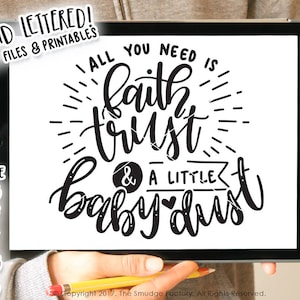 ND LETTERED!
FILES & PRINTABLES
ALL YOU NEED IS
faith
trust
& A LITTLE
baby dust
© Copyright 2017. The Smudge Factory. All Rights Reserved.